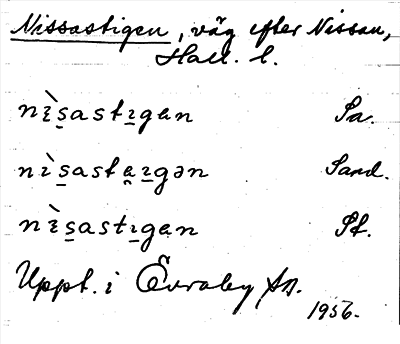 Nissastigen, väg efter Nissan,
Hall. l.
nìsastıgan Sa.
nìsastaıgən Sand.
nìsastıgan St.
Uppt. i Övraby, sn.
1956.